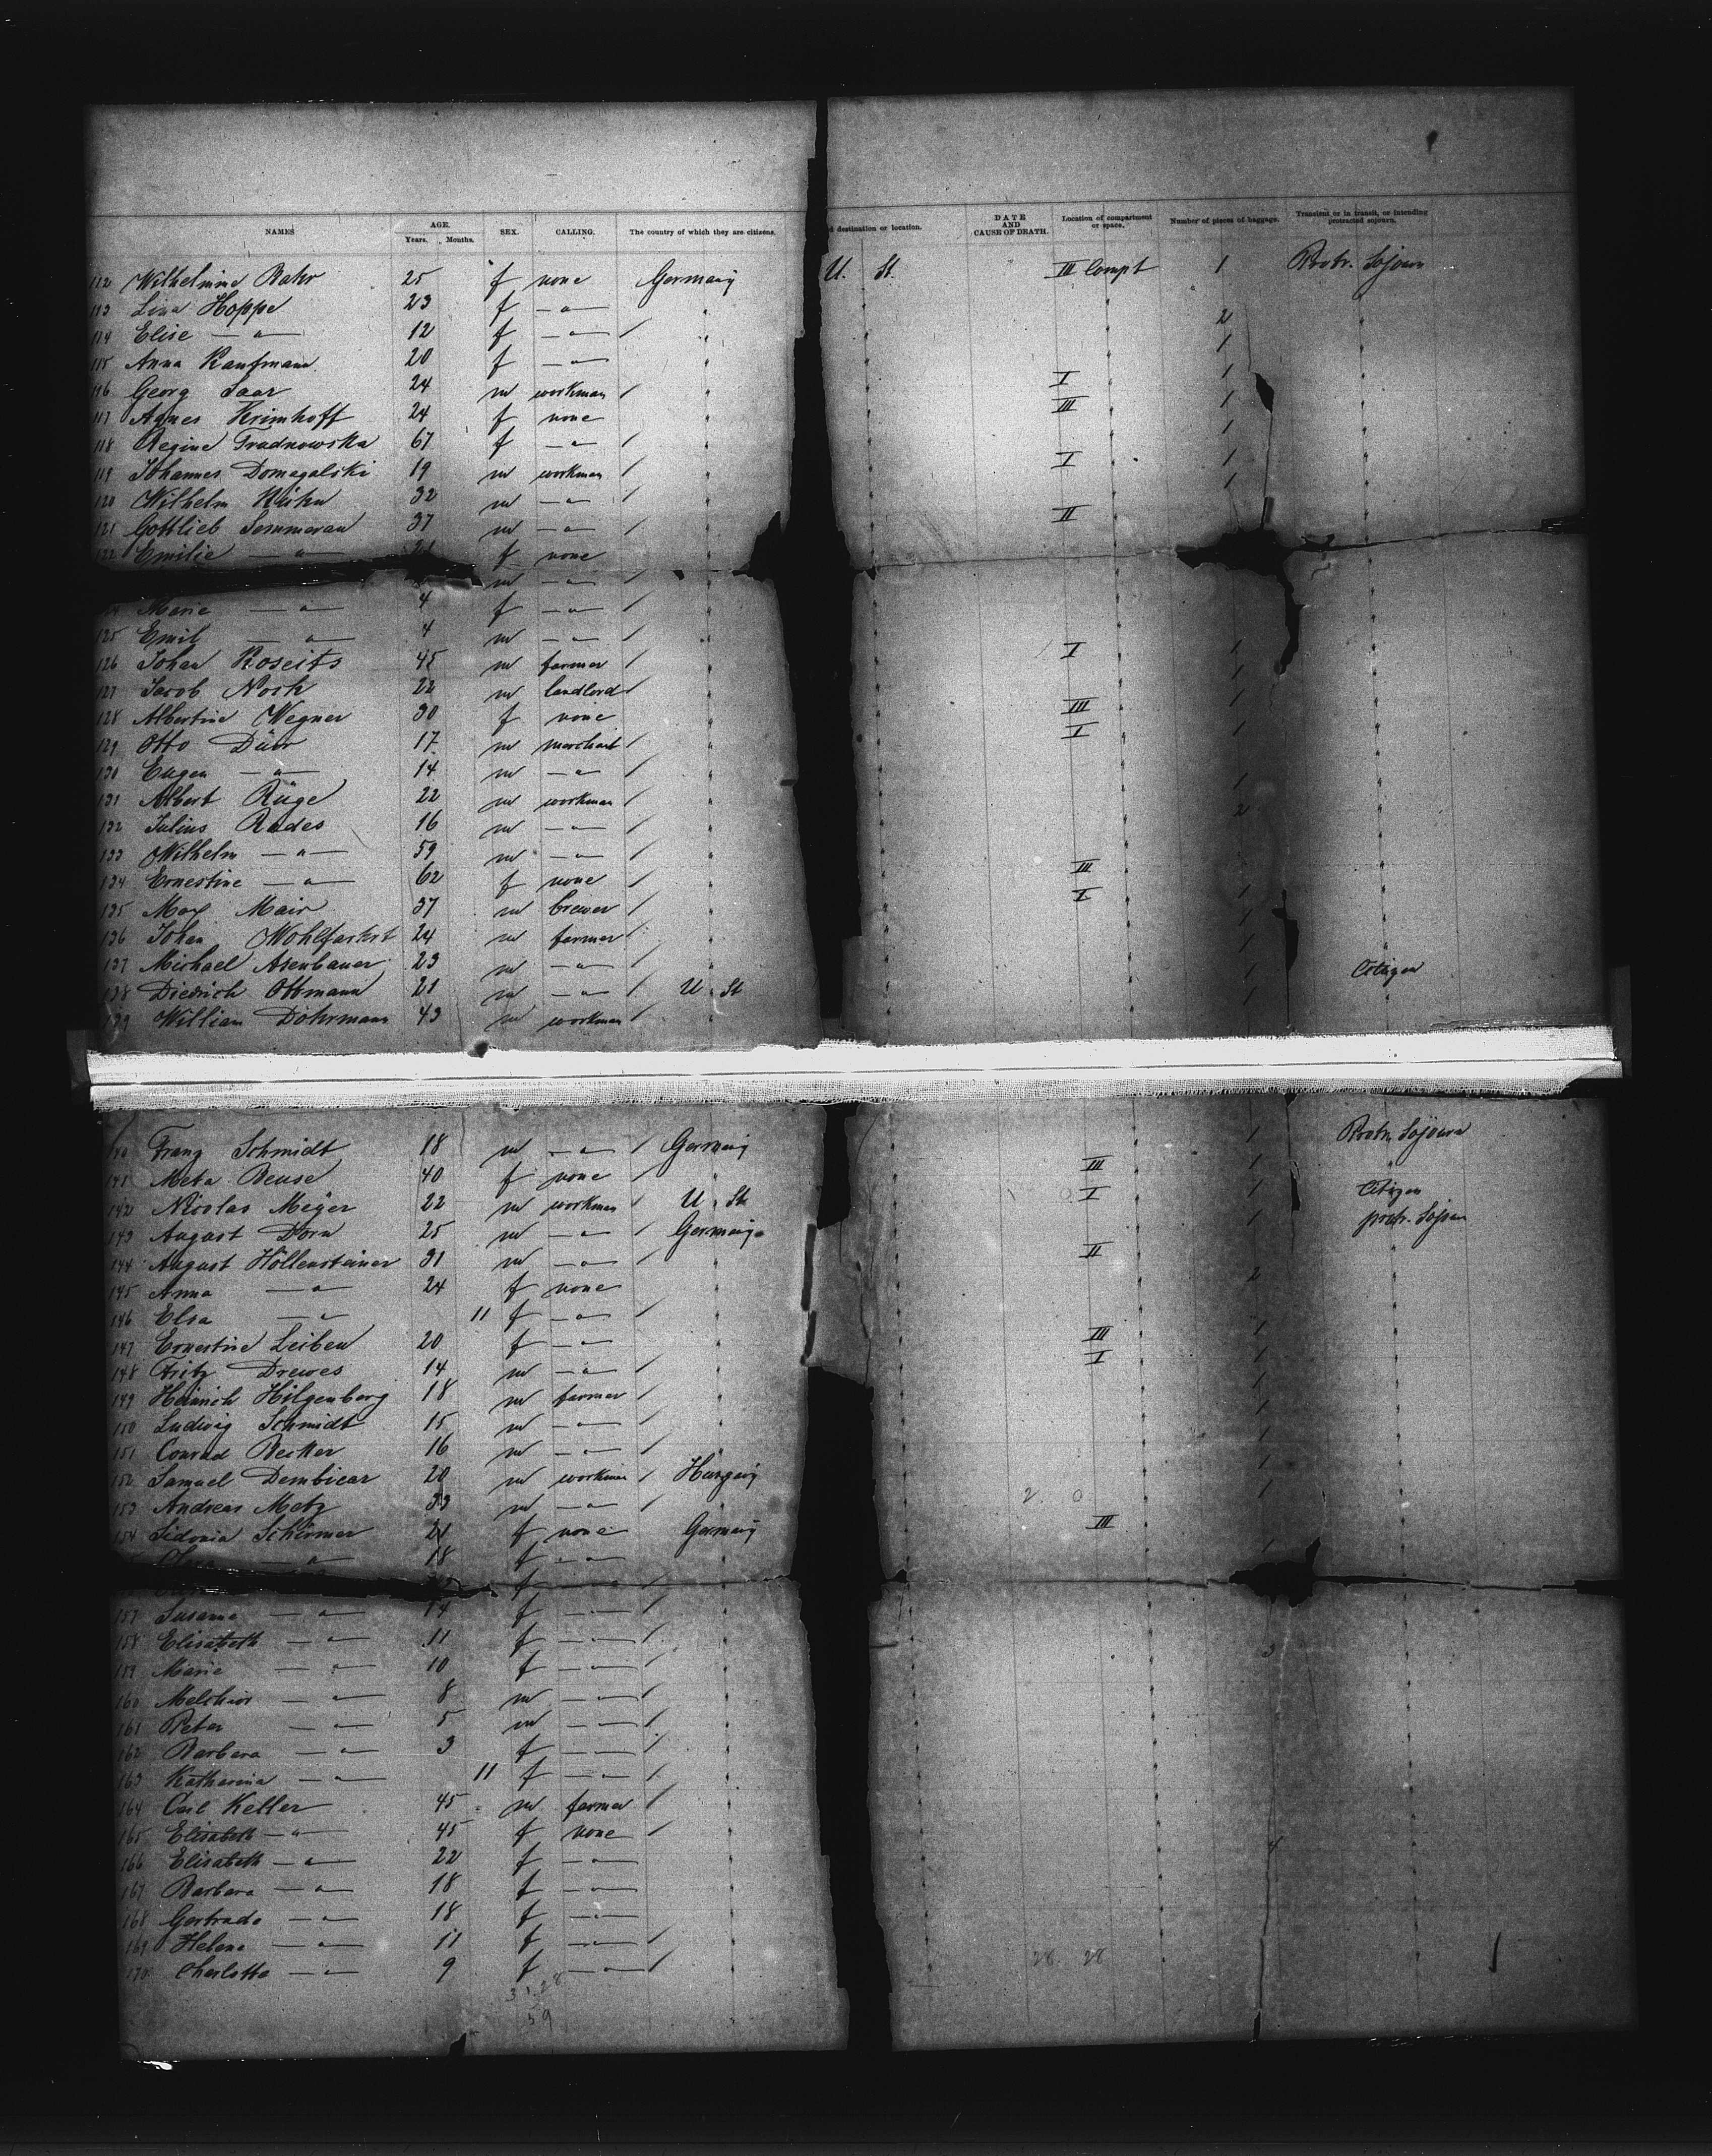 NAMES AGE. Years. Months. SEX. CALLING. The country of which they are citizens. destination or location. DATE AND CAUSE OF DEATH. Location of compartment or space. Number of pieces of baggage. Transient or in transit, or intending protracted sojourn.
112 Wilhelmine Bahr 25 f none Germany U. St. III Compt 1 Protr. Sojourn
113 Lina Hoppe 23 f — " — 2
114 Elise — " — 12 f — " — / 1
115 Anna Kaufmann 20 f — " — 1
116 Georg Saar 24 m workman / I 1
117 Agnes Krimhoff 24 f none III 1
118 Regine Tradnowska 67 f — " — /
119 Johannes Domagalski 19 m workman / I 1
120 Wilhelm 32 m — " — / 1
121 Gottlieb Sommerau 37 m — " — / II
122 Emilie — " — f none
m — " — /
Marie — " — 4 f — " — /
125 Emil — " — 4 m — " — /
126 Johan Koseits 45 m farmer / I 1
127 Jacob Nosk 22 m landlord / 1
128 Albertine Wegner 30 f none III 1
129 Otto Dürr 17 m merchant / I 1
130 Eugen — " — 14 m — " — /
131 Albert Rüge 22 m workman / 1
132 Julius Rades 16 m — " — / 2
133 Wilhelm — " — 59 m — " — /
134 Ernestine — " — 62 f none / III
135 Max Mair 37 m brewer / I 1
136 Johan Wohlfarkst 24 m farmer / 1
137 Michael Asenbauer 23 m — " — / 1
138 Diedrich Ottmann 21 m — " — / U. St 1 Citizen
139 William Döhrmann 43 m workman / 1
140 Franz Schmidt 18 m — " — / Germany 1 Protr. Sojourn
141 Meta Reuse 40 f none / III 1
142 Nicolas Meyer 22 m workman / U. St. I 1 Citizen
143 August Dorn 25 m — " — / Germany 1 protr. Sojourn
144 August Höllensteiner 31 m — " — / II
145 Anna — " — 24 f none 2
146 Elsa — " — 11 f — " — /
147 Ernestine Leiben 20 f — " — III 1
148 Fritz Drewes 14 m — " — / I 1
149 Heinrich Hilgenberg 18 m farmer / 1
150 Ludwig Schmidt 15 m — " — / 1
151 Conrad Becker 16 m — " — / 1
152 Samuel Dembicar 20 m workman / Hungary 1
153 Andreas Metz 33 m — " — / 2 0 1
154 Sidonia Schirmer 21 f none Germany III
— " — 18 f — " — 1
f — " — /
157 Susanna — " — 14 f — " — /
158 Elisabeth — " — 11 f — " — / 3
159 Marie — " — 10 f — " — /
160 Melchior — " — 8 m — " — /
161 Peter — " — 5 m — " — /
162 Barbara — " — 3 f — " — /
163 Katharina — " — 11 f — " — /
164 Carl Keller 45 m farmer /
165 Elisabeth — " — 45 f none / 4
166 Elisabeth — " — 22 f — " —
167 Barbara — " — 18 f — " —
168 Gertrude — " — 18 f — " —
169 Helene — " — 11 f — " — /
170 Charlotte — " — 9 f — " — / 28 28
31 28
59